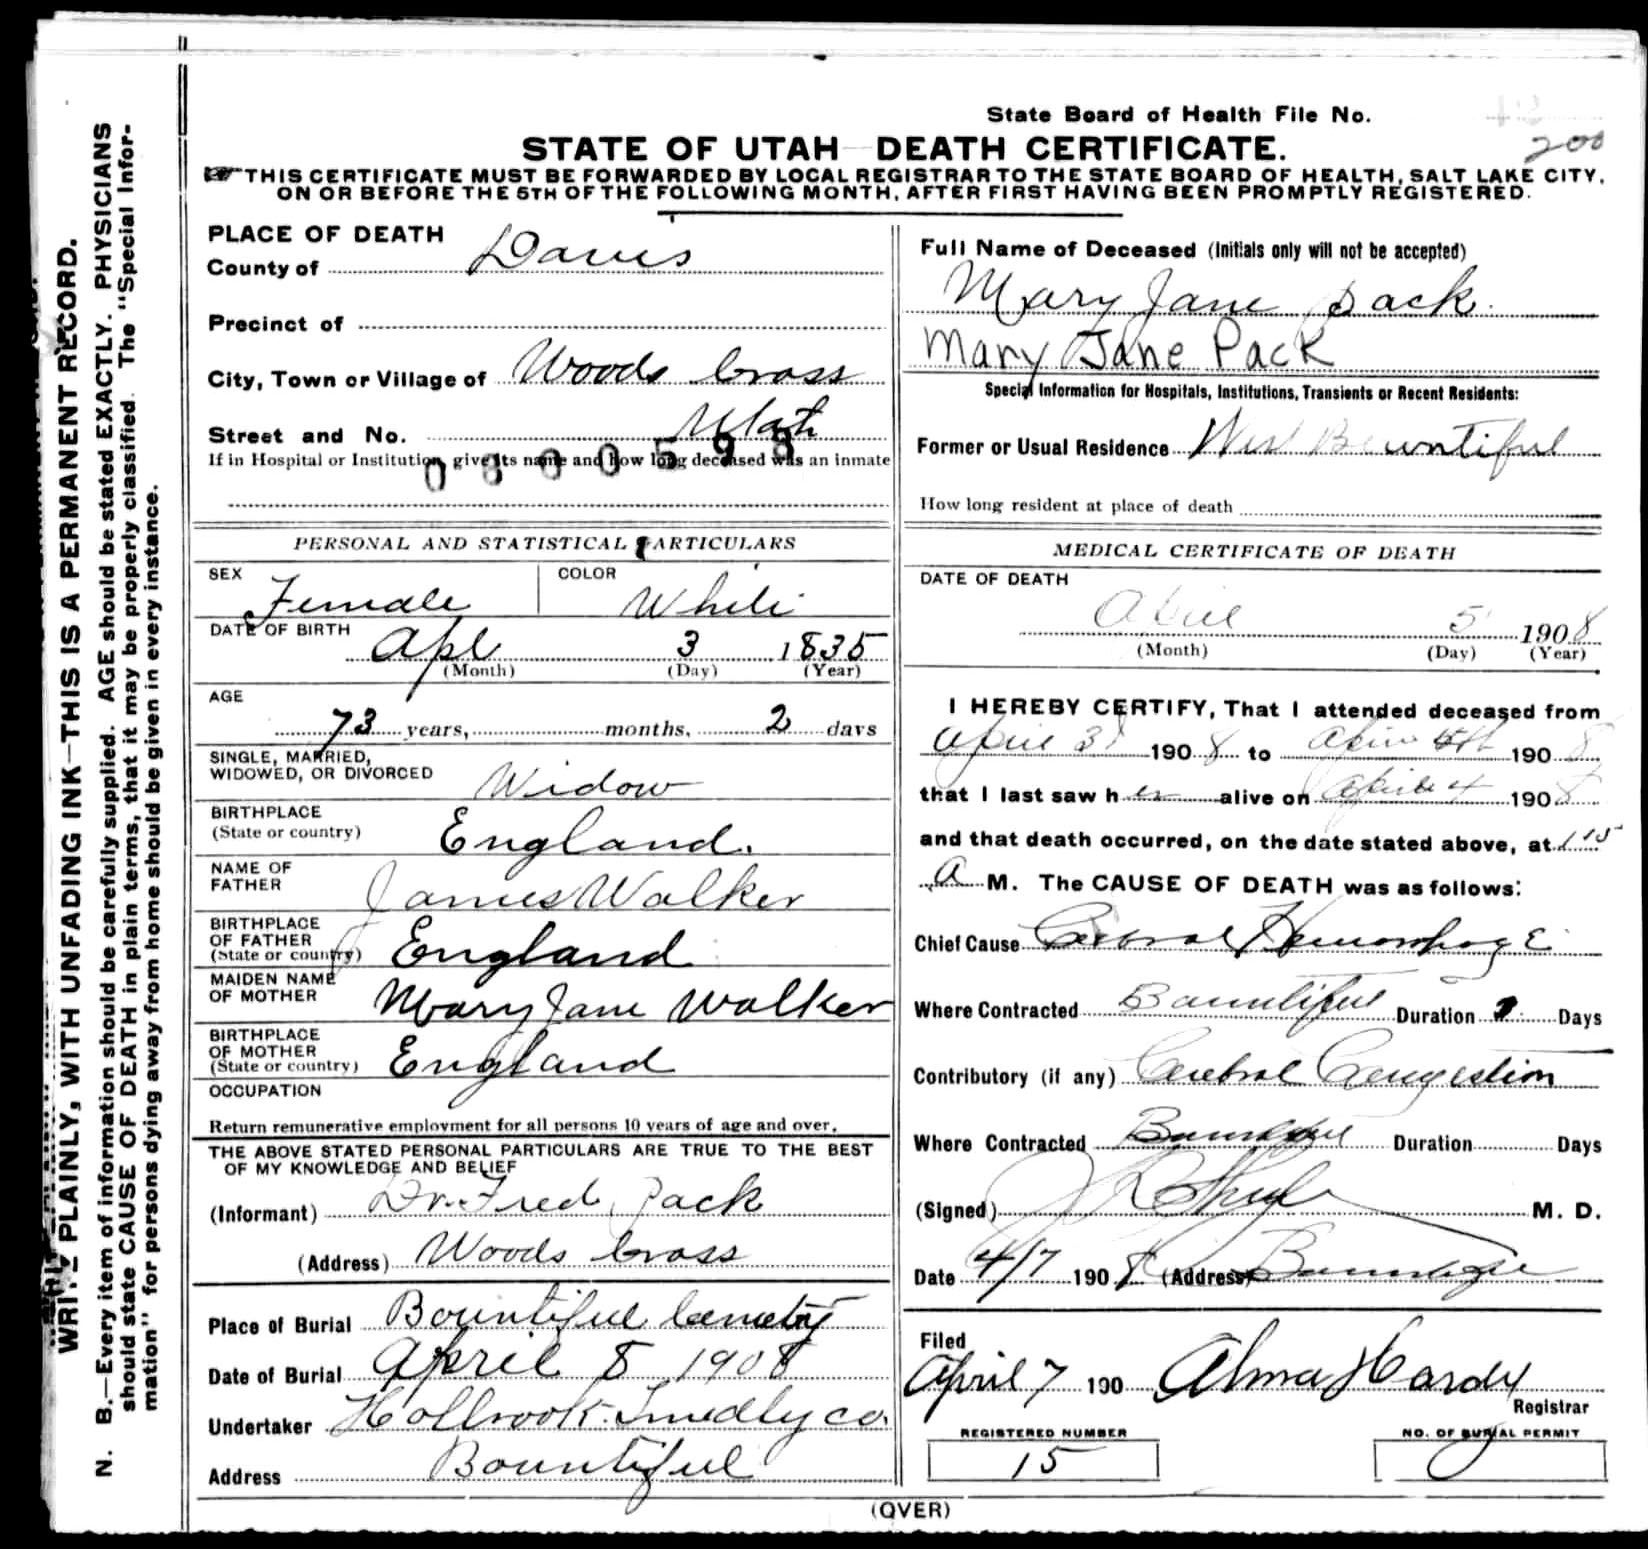 State Board of Health File No.
200
STATE OF UTAH—DEATH CERTIFICATE.
THIS CERTIFICATE MUST BE FORWARDED BY LOCAL REGISTRAR TO THE STATE BOARD OF HEALTH, SALT LAKE CITY,
ON OR BEFORE THE 5TH OF THE FOLLOWING MONTH, AFTER FIRST HAVING BEEN PROMPTLY REGISTERED.
WRITE PLAINLY, WITH UNFADING INK—THIS IS A PERMANENT RECORD.
N. B.—Every item of information should be carefully supplied. AGE should be stated EXACTLY. PHYSICIANS
should state CAUSE OF DEATH in plain terms, that it may be properly classified. The "Special Infor-
mation" for persons dying away from home should be given in every instance.
PLACE OF DEATH
County of Davis
Precinct of
City, Town or Village of Woods Cross
Street and No. Utah
If in Hospital or Institution, give its name and how long deceased was an inmate
0800598
PERSONAL AND STATISTICAL PARTICULARS
SEX Female COLOR White
DATE OF BIRTH Apl 3 1835
(Month) (Day) (Year)
AGE
73 years, months, 2 days
SINGLE, MARRIED,
WIDOWED, OR DIVORCED Widow
BIRTHPLACE
(State or country) England.
NAME OF
FATHER James Walker
BIRTHPLACE
OF FATHER
(State or country) England
MAIDEN NAME
OF MOTHER Mary Jane Walker
BIRTHPLACE
OF MOTHER
(State or country) England
OCCUPATION
Return remunerative employment for all persons 10 years of age and over.
THE ABOVE STATED PERSONAL PARTICULARS ARE TRUE TO THE BEST
OF MY KNOWLEDGE AND BELIEF
(Informant) Dr. Fred Pack
(Address) Woods Cross
Place of Burial Bountiful Cemetry
Date of Burial April 8 1908
Undertaker Holbrook-Smedly co.
Address Bountiful
Full Name of Deceased (Initials only will not be accepted)
Mary Jane Pack.
Mary Jane Pack
Special Information for Hospitals, Institutions, Transients or Recent Residents:
Former or Usual Residence West Bountiful
How long resident at place of death
MEDICAL CERTIFICATE OF DEATH
DATE OF DEATH
April 5 1908
(Month) (Day) (Year)
I HEREBY CERTIFY, That I attended deceased from
April 3d 1908 to April 5th 1908
that I last saw her alive on April 4 1908
and that death occurred, on the date stated above, at 1 15
A M. The CAUSE OF DEATH was as follows:
Chief Cause Cerebral Hemorrhage
Where Contracted Bountiful Duration Days
Contributory (if any) Cerebral Congestion
Where Contracted Bountiful Duration Days
(Signed) M. D.
Date 4/7 1908 (Address) Bountiful
Filed
April 7 190 Alma Hardy
Registrar
REGISTERED NUMBER
15
NO. OF BURIAL PERMIT
(OVER)